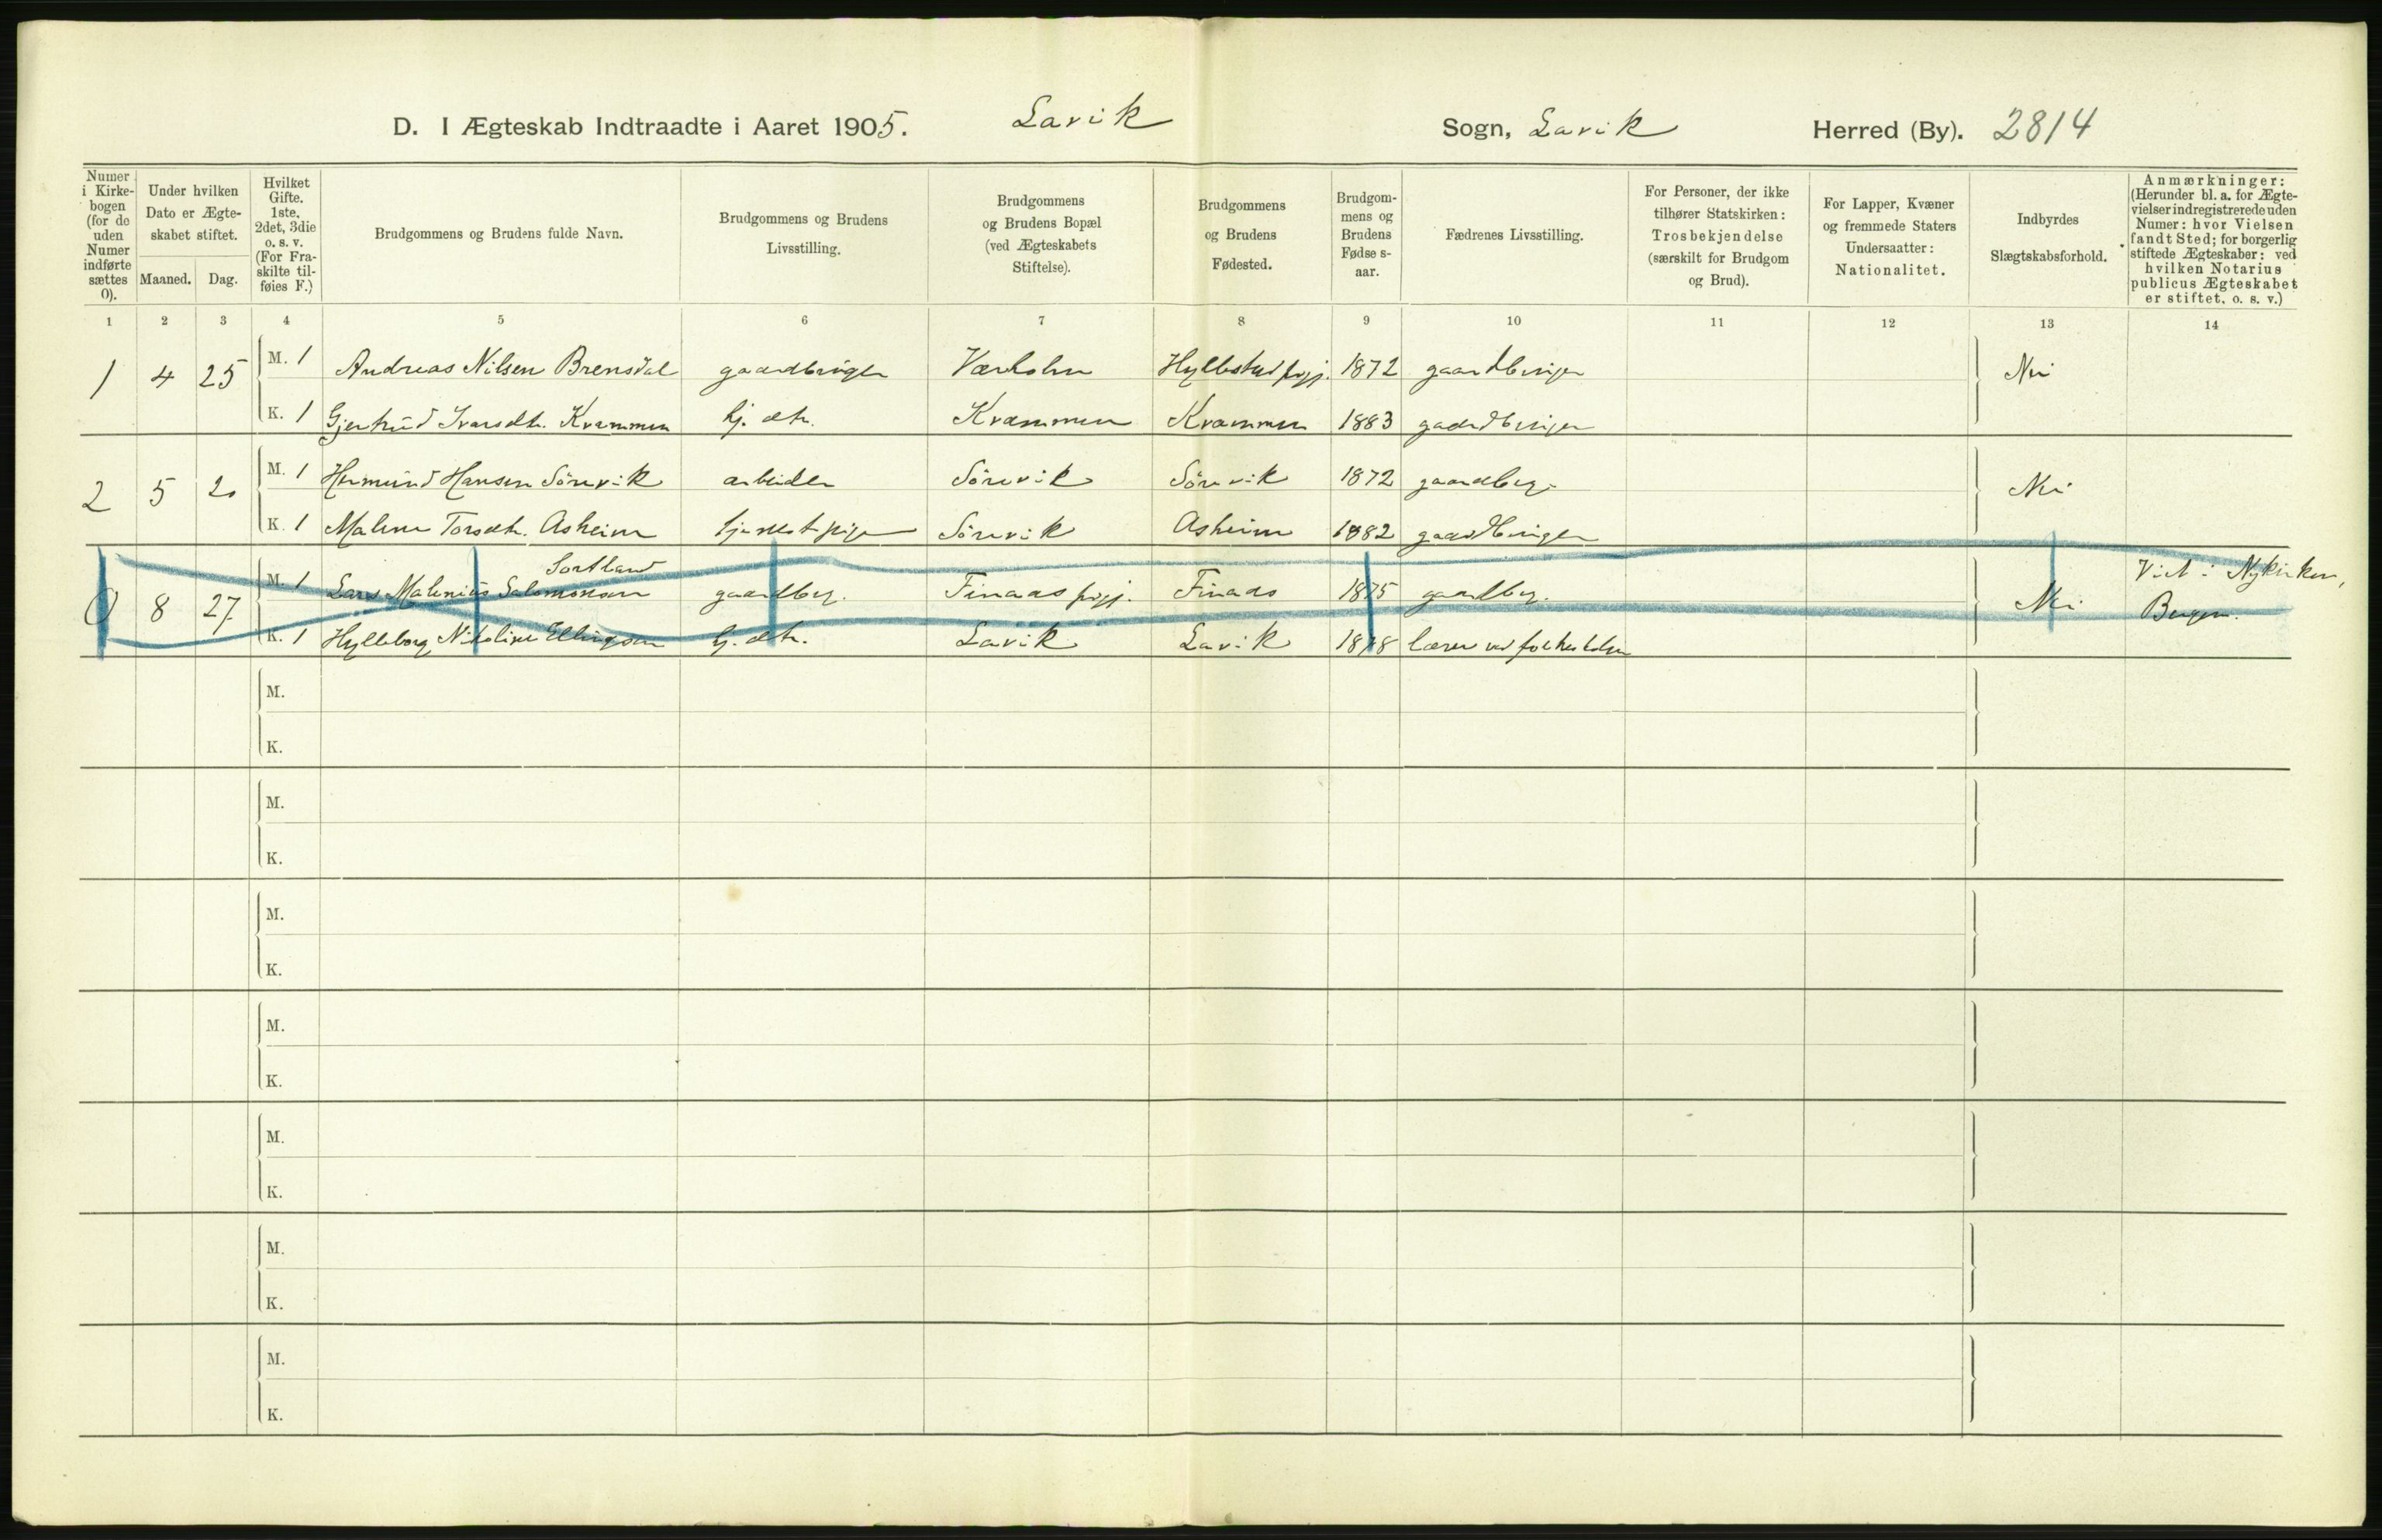 D. I Ægteskab Indtraadte i Aaret 1905. Lavik Sogn, Lavik Herred (By). 2814
Numer i Kirkebogen (for de uden Numer indførte sættes 0).
Under hvilken Dato er Ægteskabet stiftet.
Maaned. Dag.
Hvilket Gifte. 1ste, 2det, 3die o. s. v. (For Fraskilte tilføies F.)
Brudgommens og Brudens fulde Navn.
Brudgommens og Brudens Livsstilling.
Brudgommens og Brudens Bopæl (ved Ægteskabets Stiftelse).
Brudgommens og Brudens Fødested.
Brudgommens og Brudens Fødse s-aar.
Fædrenes Livsstilling.
For Personer, der ikke tilhører Statskirken: Trosbekjendelse (særskilt for Brudgom og Brud).
For Lapper, Kvæner og fremmede Staters Undersaatter: Nationalitet.
Indbyrdes Slægtskabsforhold.
Anmærkninger: (Herunder bl. a. for Ægtevielser indregistrerede uden Numer: hvor Vielsen fandt Sted; for borgerlig stiftede Ægteskaber: ved hvilken Notarius publicus Ægteskabet er stiftet, o. s. v.)
1 2 3 4 5 6 7 8 9 10 11 12 13 14
1 4 25 M. 1 Andreas Nilsen Brensdal gaardbruger Værholm Hyllestad prgj. 1872 gaardbruger Nei
K. 1 Gjertrud Ivarsdtr. Krammen hj. dtr. Krammen Krammen 1883 gaardbruger
2 5 20 M. 1 Hermund Hansen Sörevik arbeider Sörevik Sörevik 1872 gaardbrg. Nei
K. 1 Malene Torsdtr. Asheim tjenestpige Sörevik Asheim 1882 gaardbruger
Sortland
0 8 27. M. 1 Lars Malenius Salomonsen gaardbrg. Finaas prgj. Finaas 1875 gaardbrg. Nei Viet i Nykirken, Bergen.
K. 1 Hylleborg Nikoline Ellingsen hj. dtr. Lavik Lavik 1878 lærer ved
M.
K.
M.
K.
M.
K.
M.
K.
M.
K.
M.
K.
M.
K.